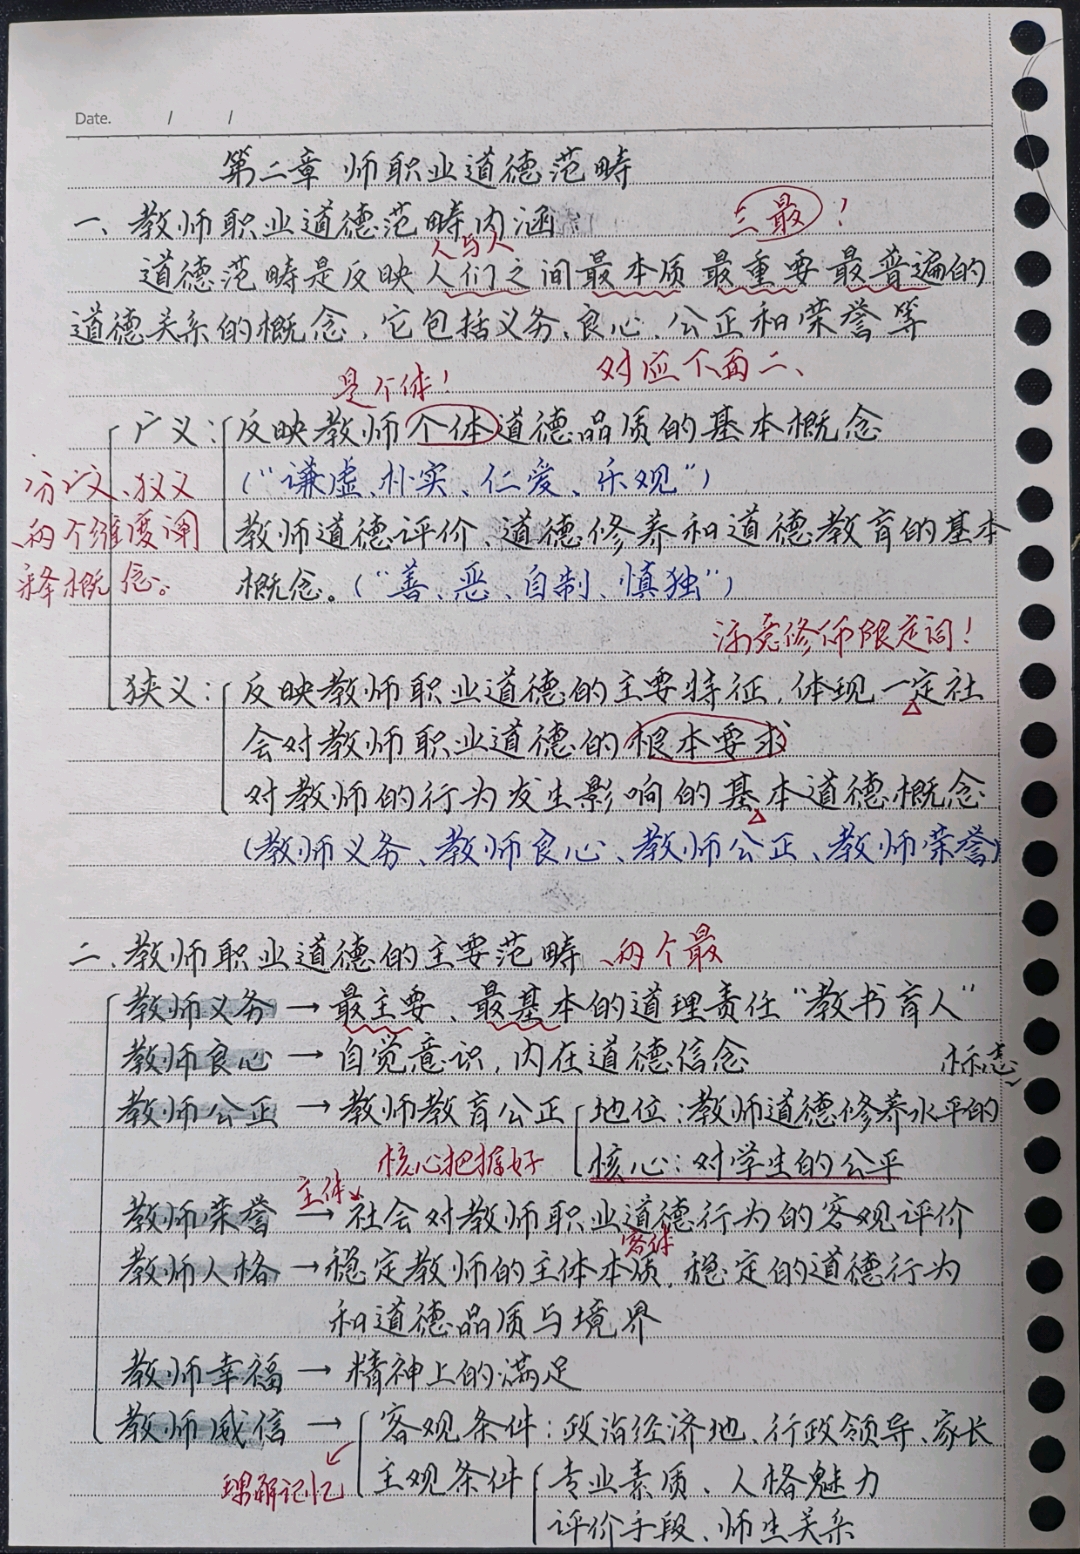 Date. / /
第二章 师职业道德范畴
一、教师职业道德范畴内涵: 三最!
人与人
道德范畴是反映人们之间最本质 最重要 最普遍的
道德关系的概念，它包括义务、良心、公正和荣誉等
是个体! 对应下面二、
广义: 反映教师个体道德品质的基本概念
分广义、狭义 ("谦虚、朴实、仁爱、乐观")
两个维度阐 教师道德评价、道德修养和道德教育的基本
释概念。 概念。("善、恶、自制、慎独")
注意修饰限定词!
狭义: 反映教师职业道德的主要特征,体现一定社
会对教师职业道德的根本要求
对教师的行为发生影响的基本道德概念
(教师义务、教师良心、教师公正、教师荣誉)
二、教师职业道德的主要范畴 两个最
教师义务 → 最主要、最基本的道理责任 "教书育人"
教师良心 → 自觉意识,内在道德信念 标志
教师公正 → 教师教育公正 地位:教师道德修养水平的
核心把握好 核心:对学生的公平
主体
教师荣誉 → 社会对教师职业道德行为的客观评价
客体
教师人格 → 稳定教师的主体本质,稳定的道德行为
和道德品质与境界
教师幸福 → 精神上的满足
教师威信 → 客观条件:政治经济地、行政领导、家长
理解记忆 主观条件 专业素质、人格魅力
评价手段、师生关系